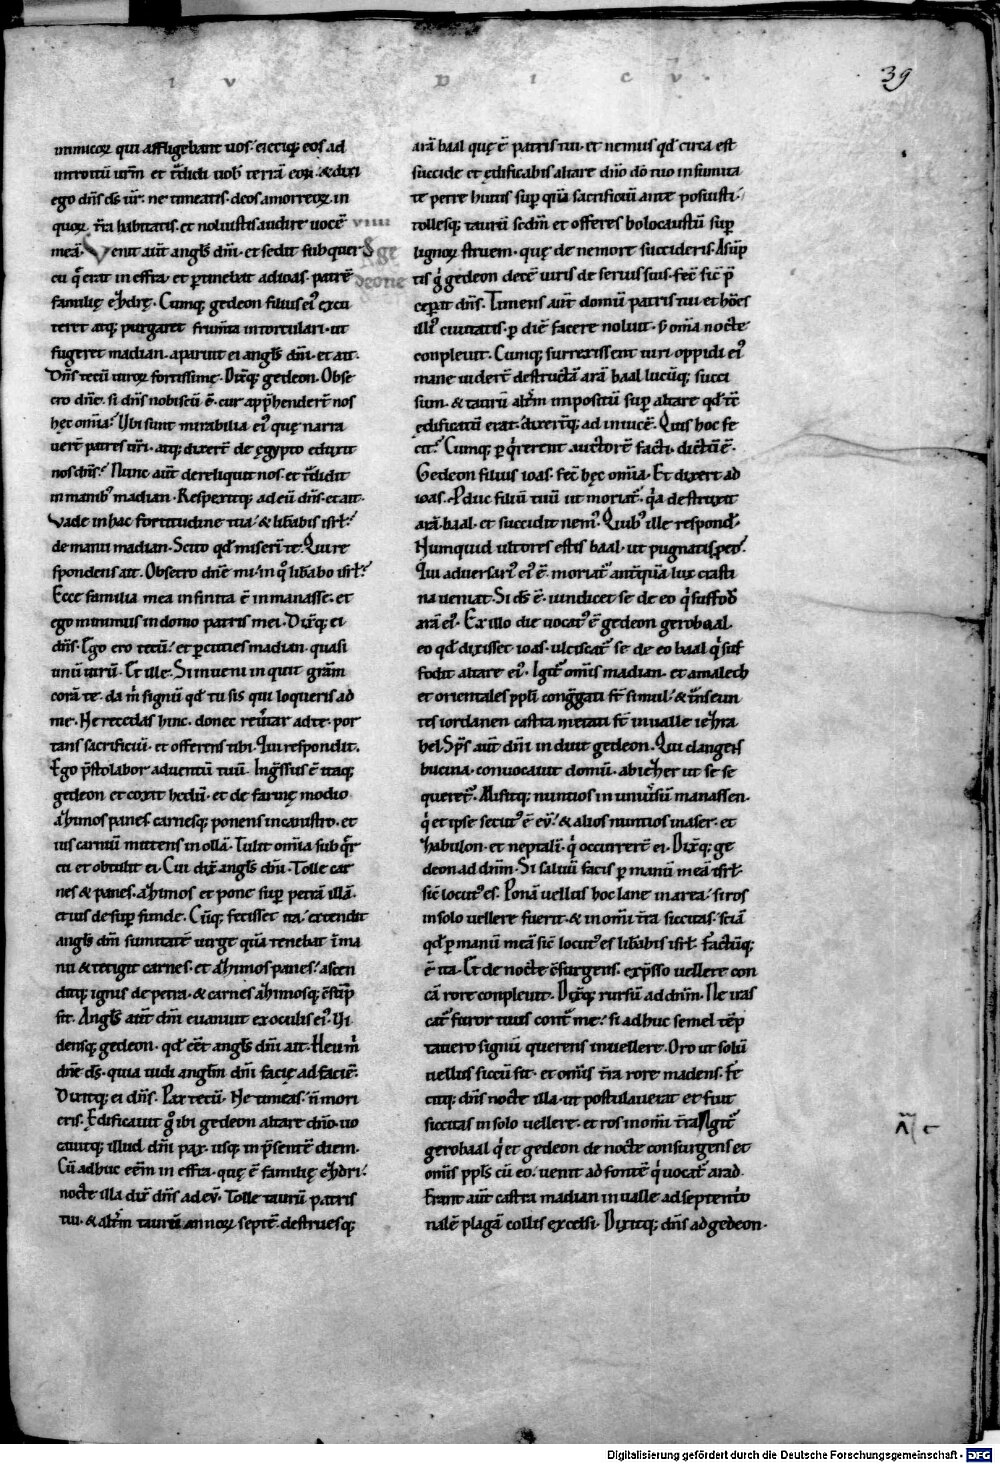 I V D I C V̄.
39
inimicoꝝ qui affligebant uos. eieciq; eos ad
introitū urm̄ et t̄didi uob̄ terrā eoꝝ. & dixi
ego dn̄s ds̄ ur̄. ne timeatis. deos amorreoꝝ. in
quoꝝ t̄ra habitatis. et noluistis audire uocē
meā. Venit aut̄ angls̄ dn̄i. et sedit sub quer
cu q̄ erat in effra. et ꝑtinebat ad ioas. patrē
familię ezdrę. Cumq; gedeon filius ei⁹ excu
teret atq; purgaret frum̄ta in torculari. ut
fugeret madian. aparuit ei angls̄ dn̄i. et ait.
Dn̄s tecū uiroꝝ fortissime. Dix̄q; gedeon. Obse
cro dn̄e. si dn̄s nobiscū ē. cur app̄hendert̄ nos
hęc om̄ia? Vbi sunt mirabilia ei⁹ quę narra
uert̄ patres nr̄i. atq; dixert̄ de ęgypto eduxit
nos dn̄s? Nunc aut̄ dereliquit nos. et t̄didit
in manib⁹ madian. Respexitq; ad eū dn̄s. et ait.
Vade in hac fortitudine tua. & lib̄abis isrl̄.
de manu madian. Scito qd̄ miserim̄ te. Qui re
spondens ait. Obsecro dn̄e mi. in q̊ lib̄abo isrl̄?
Ecce familia mea infinita ē in manasse. et
ego minimus in domo patris mei. Dix̄q; ei
dn̄s. Ego ero tecū. et ꝑcuties madian. quasi
unū uirū. Et ille. Si inueni inquit gr̄am
corā te. da m̄ signū qd̄ tu sis qui loqueris ad
me. Ne recedas hinc. donec reūtar ad te. por
tans sacrificiū. et offerens tibi. Qui respondit.
Ego p̄stolabor aduentū tuū. Ingr̄ssus ē itaq;
gedeon et coxit hedū. et de farinę modio
azimos panes. carnesq; ponens in canistro. et
ius carniū mittens in ollā. Tulit om̄ia sub qr̄
cu et obtulit ei. Cui dix̄ angls̄ dn̄i. Tolle car
nes & panes. azimos et pone sup̄ petrā illā.
et ius desup̄ funde. Cūq; fecisset ita. extendit
angls̄ dn̄i sumitatē uirgę quā tenebat ī ma
nu & tetigit carnes. et azimos panes. ascen
ditq; ignis de petra. & carnes azimosq; c̄sūp
sit. Angls̄ aut̄ dn̄i euanuit ex oculis ei⁹. Vi
densq; gedeon. qd̄ eēt angls̄ dn̄i ait. Heu m̄
dn̄e ds̄. quia uidi anglm̄ dn̄i facię ad faciē.
Dixitq; ei dn̄s. Pax tecū. Ne timeas. n̄ mori
eris. Edificauit g̊ ibi gedeon altare dn̄o. uo
cauitq; illud dn̄i pax. usq; in p̄sentē diem.
Cū adhuc eēm in effra. quę ē familię ezdri.
nocte illa dix̄ dn̄s ad eū. Tolle taurū patris
tui. & altm̄ taurū annoꝝ septē. destruesq;
viiii
de ge
deone
arā baal quę ē patris tui. et nemus qd̄ circa est
succide et ędificabis altare dn̄o dō tuo in sumita
te petre huius sup̄ quā sacrificiū ante posuisti.
tollesq; taurū sedm̄ et offeres holocaustū sup̄
lignoꝝ struem. quę de nemore succideris. Asūp
tis g̊ gedeon decē uiris de seruis suis. fec̄ sic̄ p̄
ceꝑat dn̄s. Timens aut̄ domū patris tui et hōēs
illi⁹ ciuitatis. ꝑ diē facere noluit. s̄ om̄ia nocte
conpleuit. Cumq; surrexissent uiri oppidi ei⁹
mane uidert̄ destructā arā baal lucūq; succi
sum. & taurū altm̄ impositū sup̄ altare qd̄ tc̄
ędificatū erat. dixert̄q; ad inuicē. Quis hoc fe
cit? Cumq; ꝑq̄rerent auctorē facti. dictū ē.
Gedeon filius ioas. fec̄ hęc om̄ia. Et dixert̄ ad
ioas. Pduc filiū tuū ut moriat̄. q̄a destruxit
arā baal. et succidit nem⁹. Quib⁹ ille respond̄.
Numquid ultores estis baal. ut pugnatis ꝓ eo?
Qui aduersari⁹ ei⁹ ē. moriat̄ antiquā lux crasti
na ueniat. Si ds̄ ē. uindicet se de eo q̄ suffod̄
arā ei⁹. Ex illo die uocat⁹ ē gedeon gerobaal.
eo qd̄ dixisset ioas. ulciscat̄ se de eo baal q̄ suf
fodit altare ei⁹. Igit̄ om̄is madian. et amalech
et orientales ppl̄i congr̄gati st̄ simul. & t̄nseun
tes iordanen castra metati st̄ in ualle iezra
hel. Sps̄ aut̄ dn̄i induit gedeon. Qui clangens
bucina. conuocauit domū. abiezer ut se se
queret̄. Misitq; nuntios in uniūsū manassen.
q̄ et ipse secut⁹ ē eū. & alios nuntios in aser. et
zabulon. et neptalī. q̄ occurrert̄ ei. Dix̄q; ge
deon ad dn̄m. Si saluū facis ꝑ manū meā isrl̄.
sic̄ locut⁹ es. Ponā uellus hoc lane in area. si ros
in solo uellere fuerit. & in om̄i t̄ra siccitas. sciā
qd̄ ꝑ manū meā sic̄ locut⁹ es lib̄abis isrl̄. factūq;
ē ita. Et de nocte c̄surgens. exp̄sso uellere con
cā rore conpleuit. Dix̄q; rursū ad dn̄m. Ne iras
cat̄ furor tuus cont̄ me. si adhuc semel tēp
tauero signū querens in uellere. Oro ut solū
uellus siccū sit. et om̄is t̄ra rore madens. fe
citq; dn̄s nocte illa. ut postulauerat et fuit
siccitas in solo uellere. et ros in om̄i t̄ra. Igit̄
gerobaal q̄ et gedeon de nocte consurgens et
om̄is ppls̄ cū eo. uenit ad fontē q̄ uocat̄ arad.
Erant aut̄ castra madian in ualle ad septentrio
nalē plagā collis excelsi. Dixitq; dn̄s ad gedeon.
Digitalisierung gefördert durch die Deutsche Forschungsgemeinschaft - DFG